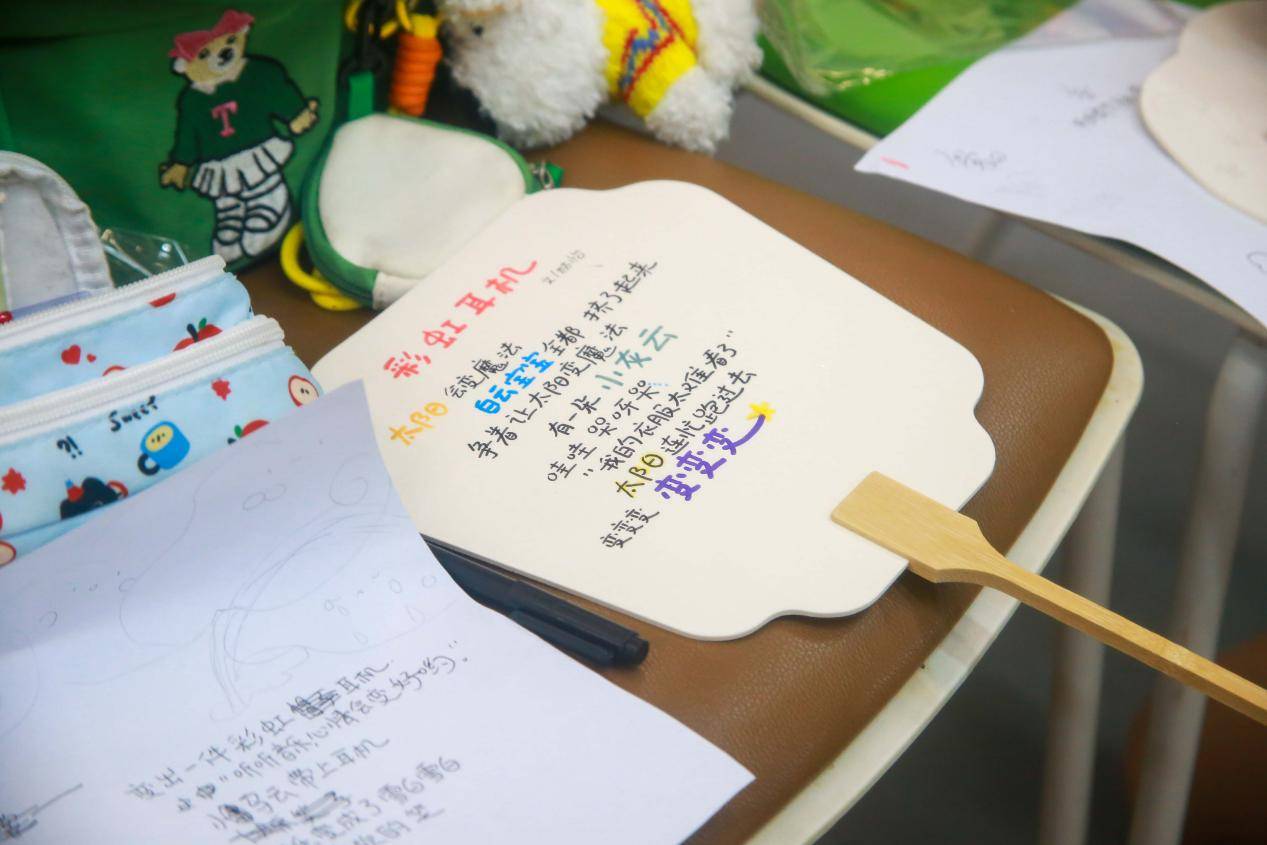 彩虹耳机
太阳 会变魔法
白云宝宝 全都 挤了起来
争着让太阳变魔法
有一朵 小灰云
哇哇 哭呀哭
"我的衣服太难看了"
太阳 连忙跑过去
变变变 变变变
变出一件彩虹耳机
"听听音乐心情会变好哟".
云带上耳机
变成了雪白雪白
T
Sweet
?!